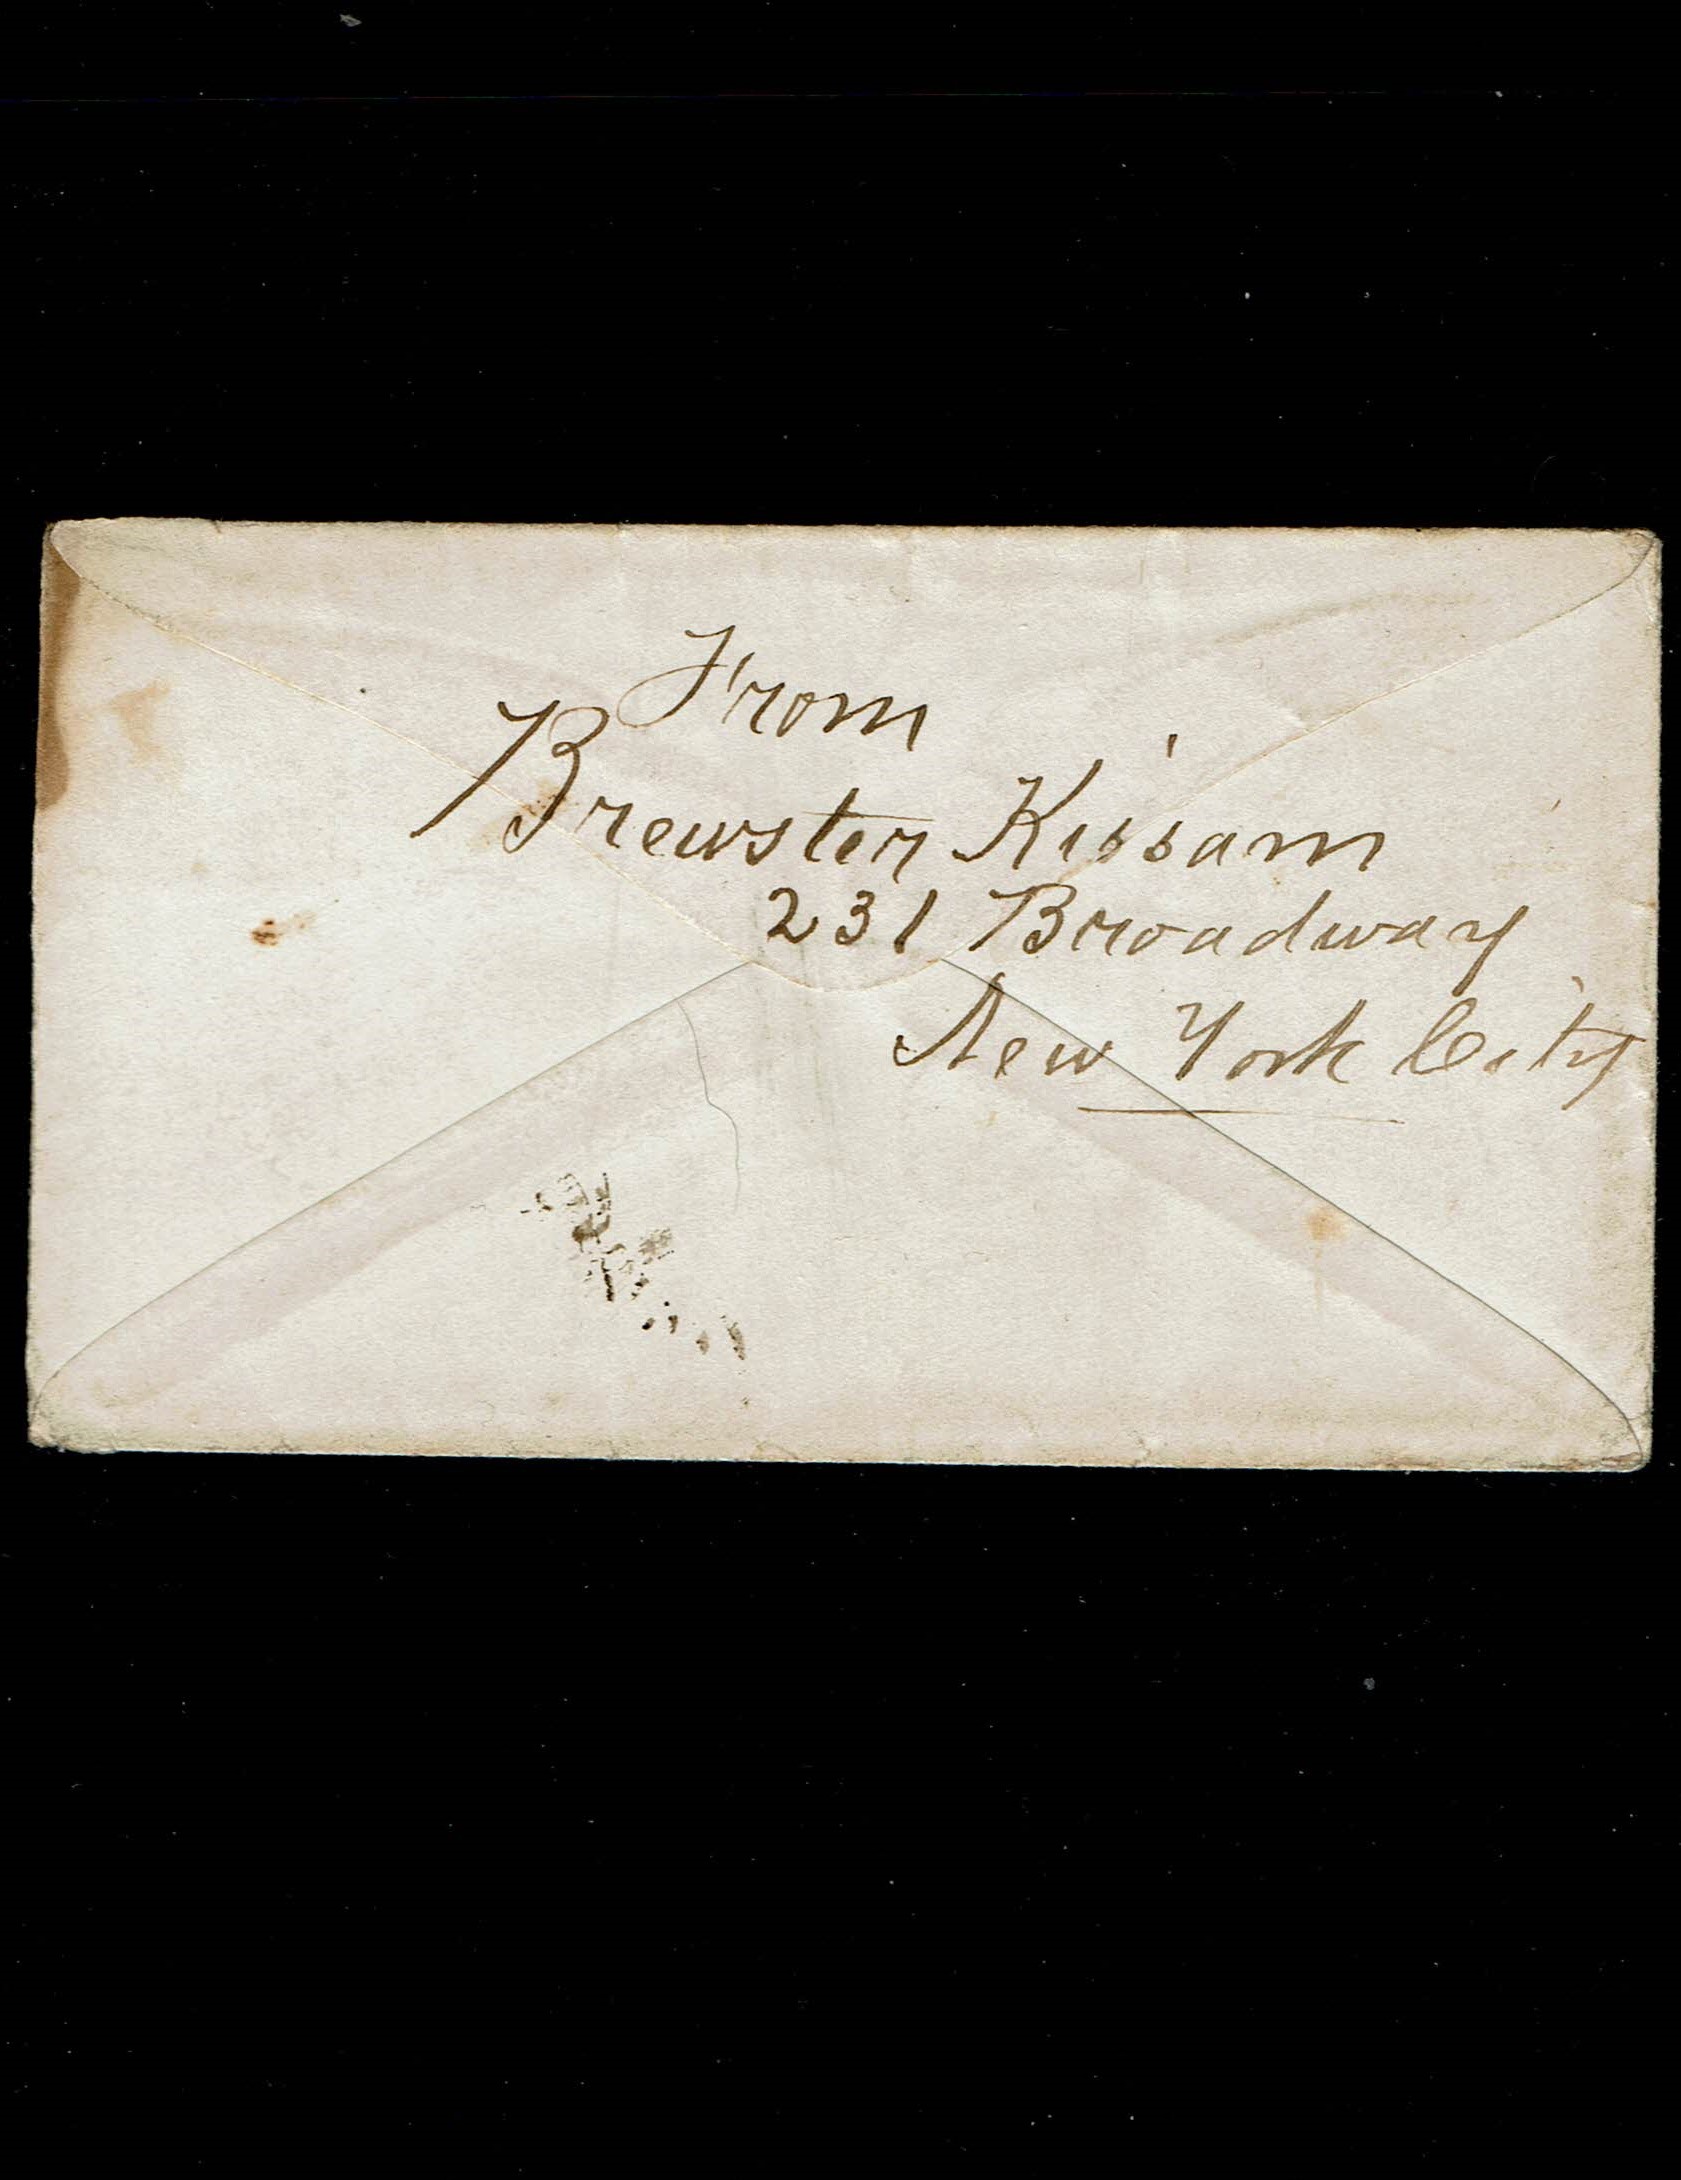 From
Brewster Kissam
231 Broadway
New York City